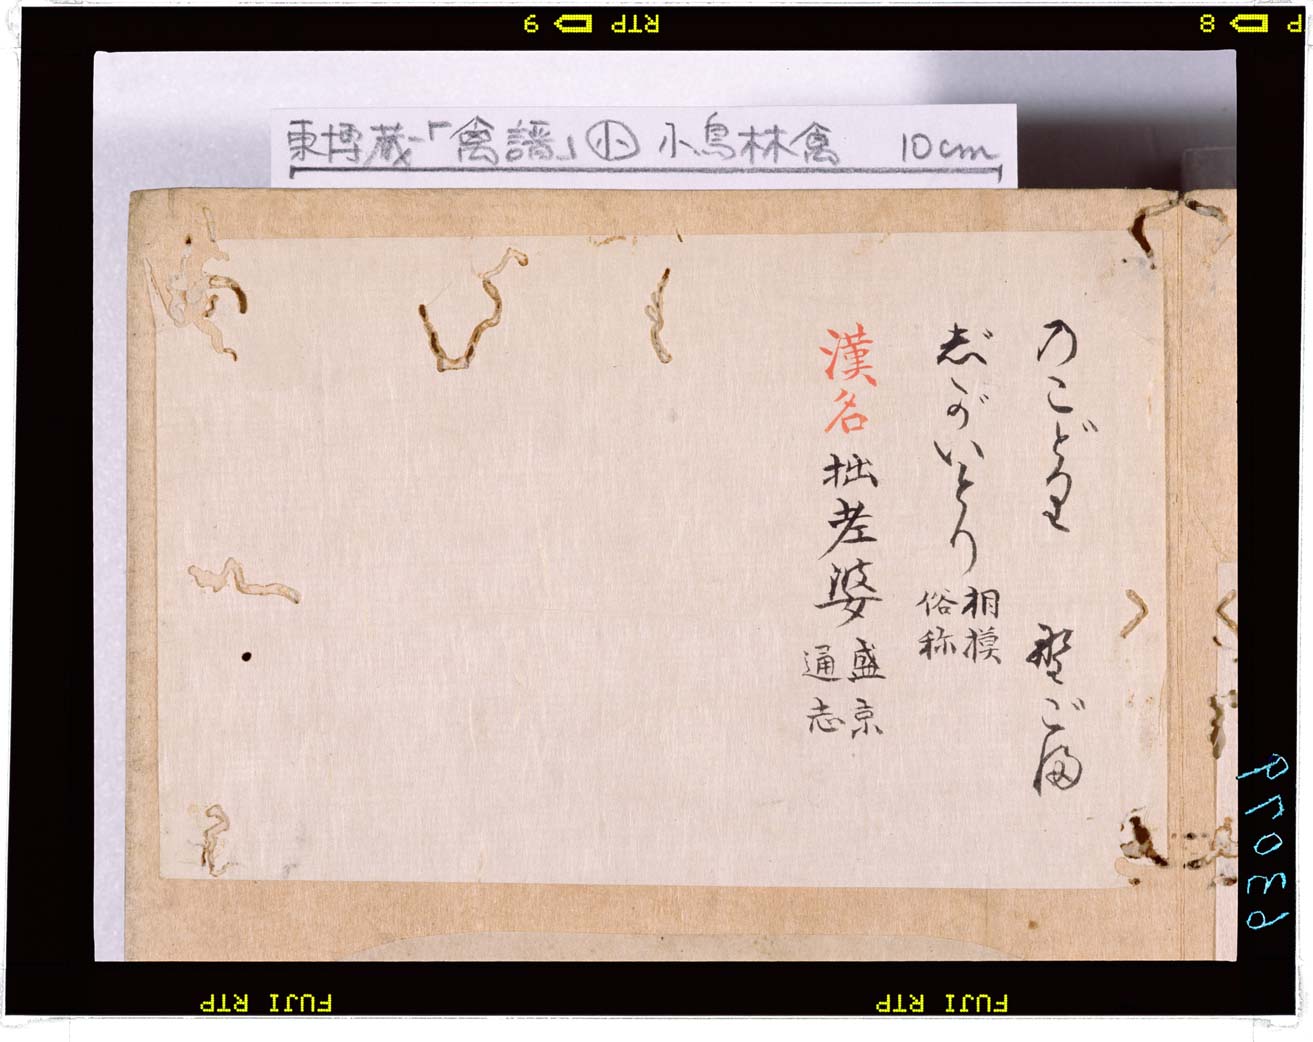 東博蔵「禽譜」㊉小鳥林禽 10cm
のごどり 野ごま
志゛がいとり 相模俗称
漢名 拙老婆 盛京通志
FUJI RTP
FUJI RTP
RTP
9
8
P